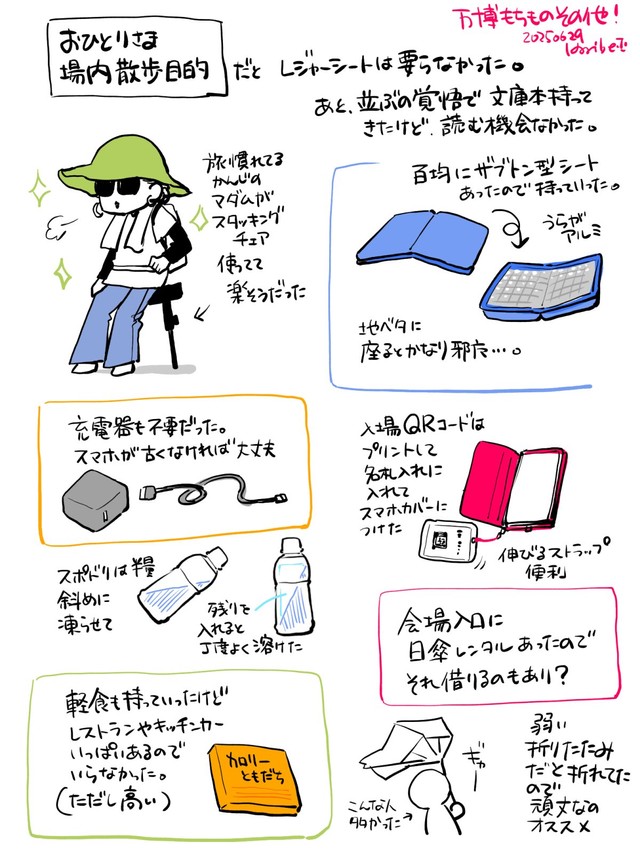 万博もちものその他!
20250629
おひとりさま
場内散歩目的 だと レジャーシートは要らなかった。
あと、並ぶの覚悟で文庫本持って
きたけど、読む機会なかった。
旅慣れてる
かんじの
マダムが
スタッキング
チェア
使ってて
楽そうだった
百均にザブトン型シート
あったので持っていった。
うらが
アルミ
地ベタに
座るとかなり邪广…。
充電器も不要だった。
スマホが古くなければ大丈夫
入場QRコードは
プリントして
名札入れに
入れて
スマホカバーに
つけた
伸びるストラップ
便利
スポドリは半量
斜めに
凍らせて
残りで
入れると
丁度よく溶けた
会場入口に
日傘レンタルあったので
それ借りるのもあり?
軽食も持っていったけど
レストランやキッチンカー
いっぱいあるので
いらなかった。
(ただし高い)
カロリー
ともだち
ギャ
こんな人
多かった→
弱い
折りたたみ
だと折れてた
ので
頑丈なの
オススメ